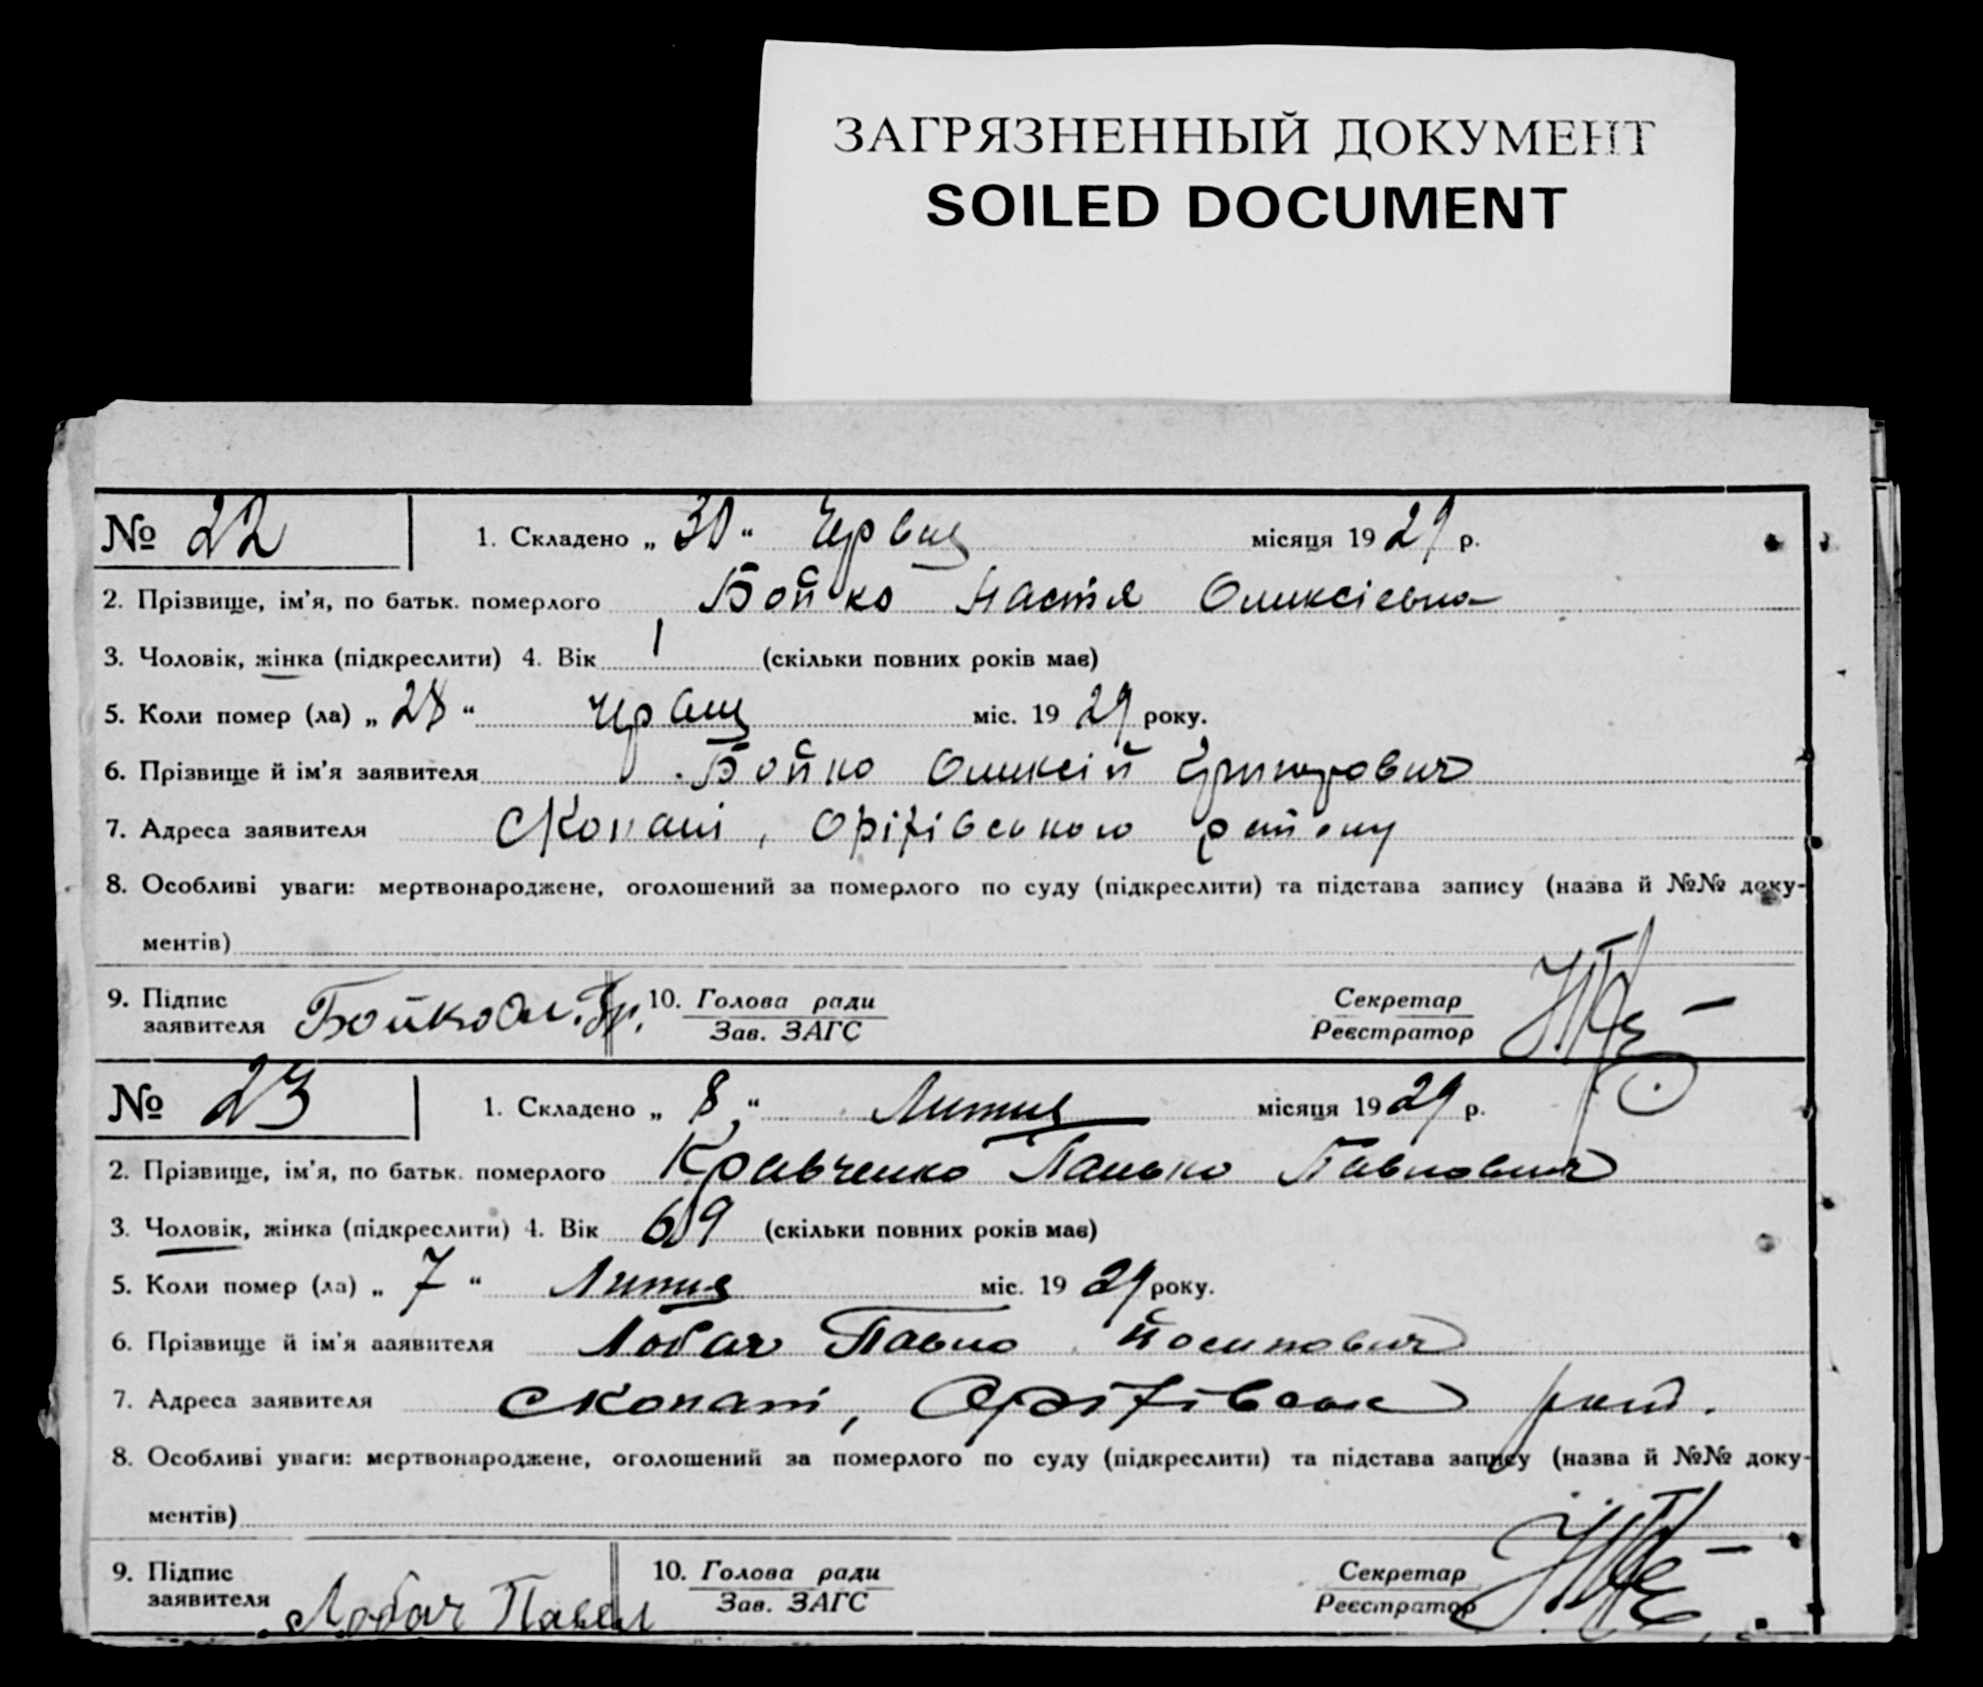 ЗАГРЯЗНЕННЫЙ ДОКУМЕНТ
SOILED DOCUMENT
№ 22 1. Складено „ 30 “ Червця місяця 19 29 р.
2. Прізвище, ім’я, по батьк. померлого Бойко Настя Олексієвна
3. Чоловік, жінка (підкреслити) 4. Вік 1 (скільки повних років має)
5. Коли помер (ла) „ 28 “ Червця міс. 19 29 року.
6. Прізвище й ім’я заявителя Бойко Олексій Григорович
7. Адреса заявителя Скопаті, Оріхівського району
8. Особливі уваги: мертвонароджене, оголошений за померлого по суду (підкреслити) та підстава запису (назва й №№ доку-
ментів)
9. Підпис заявителя Бойко Ол. Гр. 10. Голова ради Зав. ЗАГС Секретар Реєстратор
№ 23 1. Складено „ 8 “ Липня місяця 19 29 р.
2. Прізвище, ім’я, по батьк. померлого Кравченко Панько Павлович
3. Чоловік, жінка (підкреслити) 4. Вік 69 (скільки повних років має)
5. Коли помер (ла) „ 7 “ Липня міс. 19 29 року.
6. Прізвище й ім’я заявителя Лобач Павло Йосипович
7. Адреса заявителя Скопаті, Оріхівськ рай.
8. Особливі уваги: мертвонароджене, оголошений за померлого по суду (підкреслити) та підстава запису (назва й №№ доку-
ментів)
9. Підпис заявителя Лобач Павел 10. Голова ради Зав. ЗАГС Секретар Реєстратор